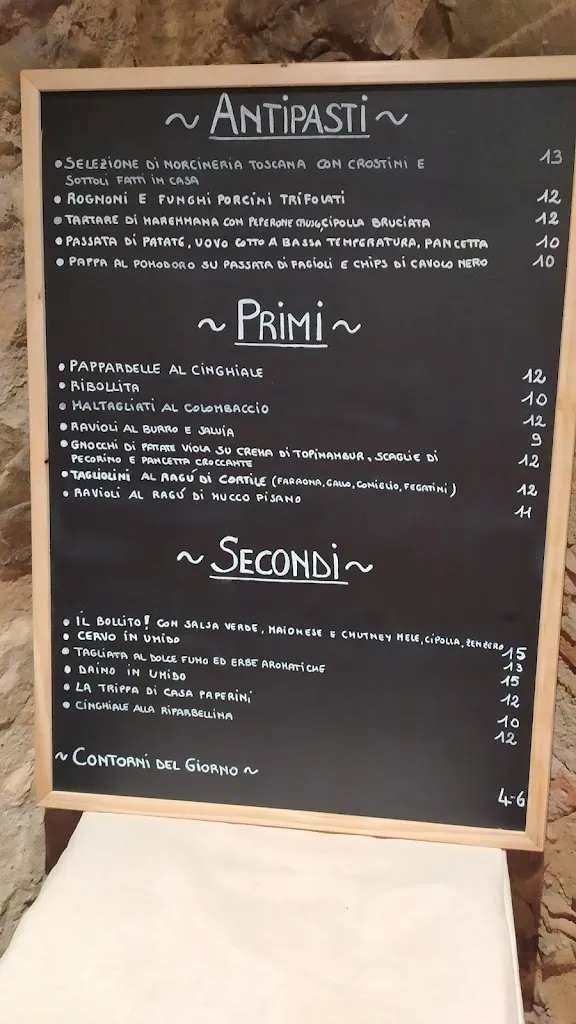 ~ ANTIPASTI ~
• SELEZIONE DI NORCINERIA TOSCANA CON CROSTINI E 13
SOTTOLI FATTI IN CASA
• ROGNONI E FUNGHI PORCINI TRIFOLATI 12
• TARTARE DI MAREMMANA CON PEPERONE CRUSCO, CIPOLLA BRUCIATA 12
• PASSATA DI PATATE, UOVO COTTO A BASSA TEMPERATURA, PANCETTA 10
• PAPPA AL POMODORO SU PASSATA DI FAGIOLI E CHIPS DI CAVOLO NERO 10
~ PRIMI ~
• PAPPARDELLE AL CINGHIALE 12
• RIBOLLITA 10
• MALTAGLIATI AL COLOMBACCIO 12
• RAVIOLI AL BURRO E SALVIA 9
• GNOCCHI DI PATATE VIOLA SU CREMA DI TOPINAMBUR, SCAGLIE DI
PECORINO E PANCETTA CROCCANTE 12
• TAGLIOLINI AL RAGÚ DI CORTILE (FARAONA, GALLO, CONIGLIO, FEGATINI) 12
• RAVIOLI AL RAGÚ DI MUCCO PISANO 11
~ SECONDI ~
• IL BOLLITO! CON SALSA VERDE, MAIONESE E CHUTNEY MELE, CIPOLLA, ZENZERO 15
• CERVO IN UMIDO 13
• TAGLIATA AL DOLCE FUMO ED ERBE AROMATICHE 15
• DAINO IN UMIDO 12
• LA TRIPPA DI CASA PAPERINI 10
• CINGHIALE ALLA RIPARBELLINA 12
~ CONTORNI DEL GIORNO ~ 4-6